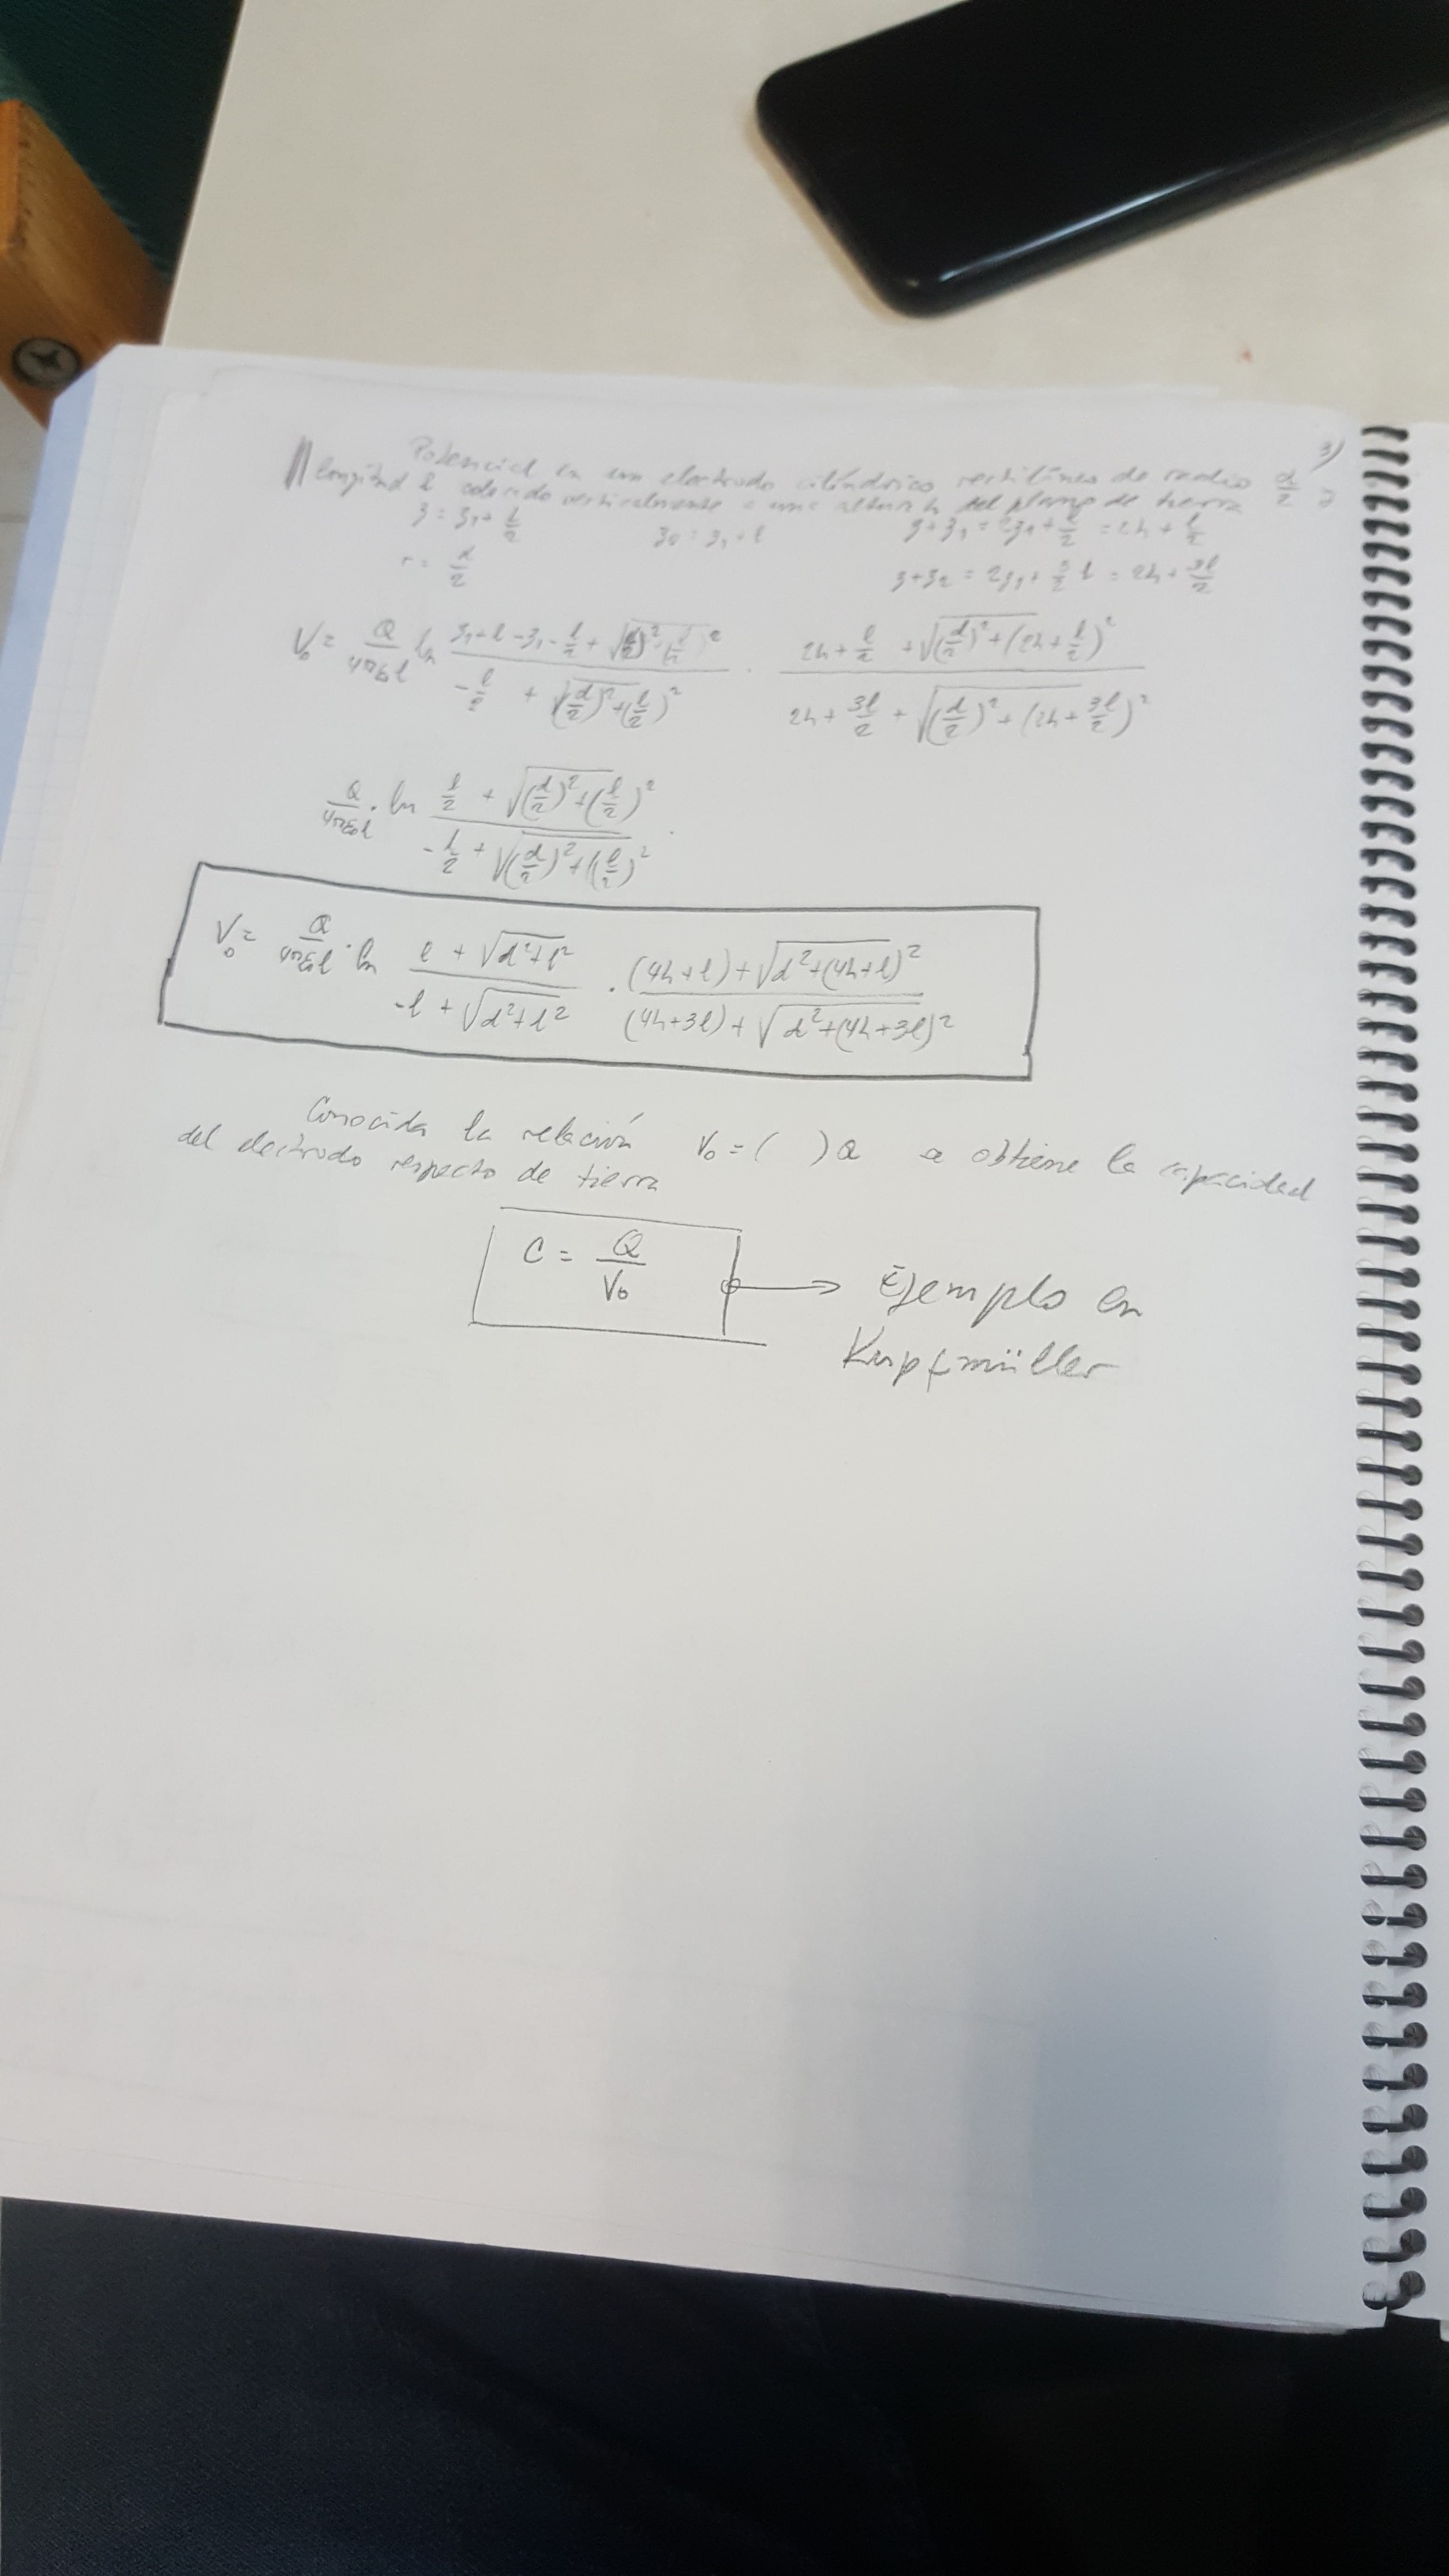 3)
Potencial en un electrodo cilíndrico rectilíneo de radio d/2 y
longitud l colocado verticalmente a una altura h del plano de tierra
z = z₁ + l/2    z₂ = z₁ + l    z + z₁ = 2z₁ + l/2 = 2h + l/2
r = d/2    z + z₂ = 2z₁ + 3/2 l = 2h + 3l/2
V₀ = Q/(4πε₀l) ln (z₁ + l - z₁ - l/2 + √((d/2)² + (l/2)²)) / (-l/2 + √((d/2)² + (l/2)²)) · (2h + l/2 + √((d/2)² + (2h + l/2)²)) / (2h + 3l/2 + √((d/2)² + (2h + 3l/2)²))
Q/(4πε₀l) · ln (l/2 + √((d/2)² + (l/2)²)) / (-l/2 + √((d/2)² + (l/2)²)) ·
V₀ = Q/(4πε₀l) · ln (l + √(d² + l²)) / (-l + √(d² + l²)) · ((4h + l) + √(d² + (4h + l)²)) / ((4h + 3l) + √(d² + (4h + 3l)²))
Conocida la relación V₀ = ( ) Q se obtiene la capacidad
del electrodo respecto de tierra
C = Q/V₀ → Ejemplo en
Kupfmüller